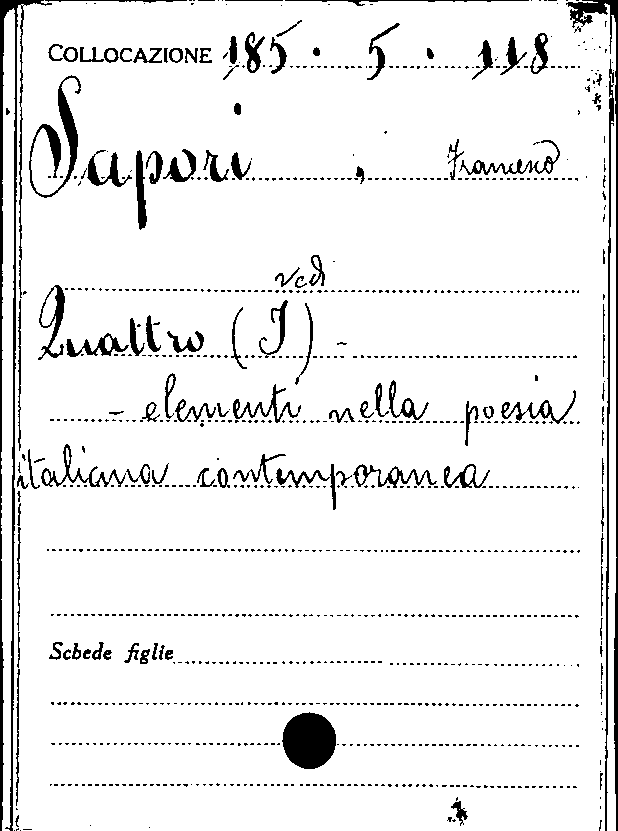 COLLOCAZIONE 185 . 5 . 118
Sapori , Francesco
vedi
Quattro (I) -
- elementi nella poesia
italiana contemporanea
Schede figlie